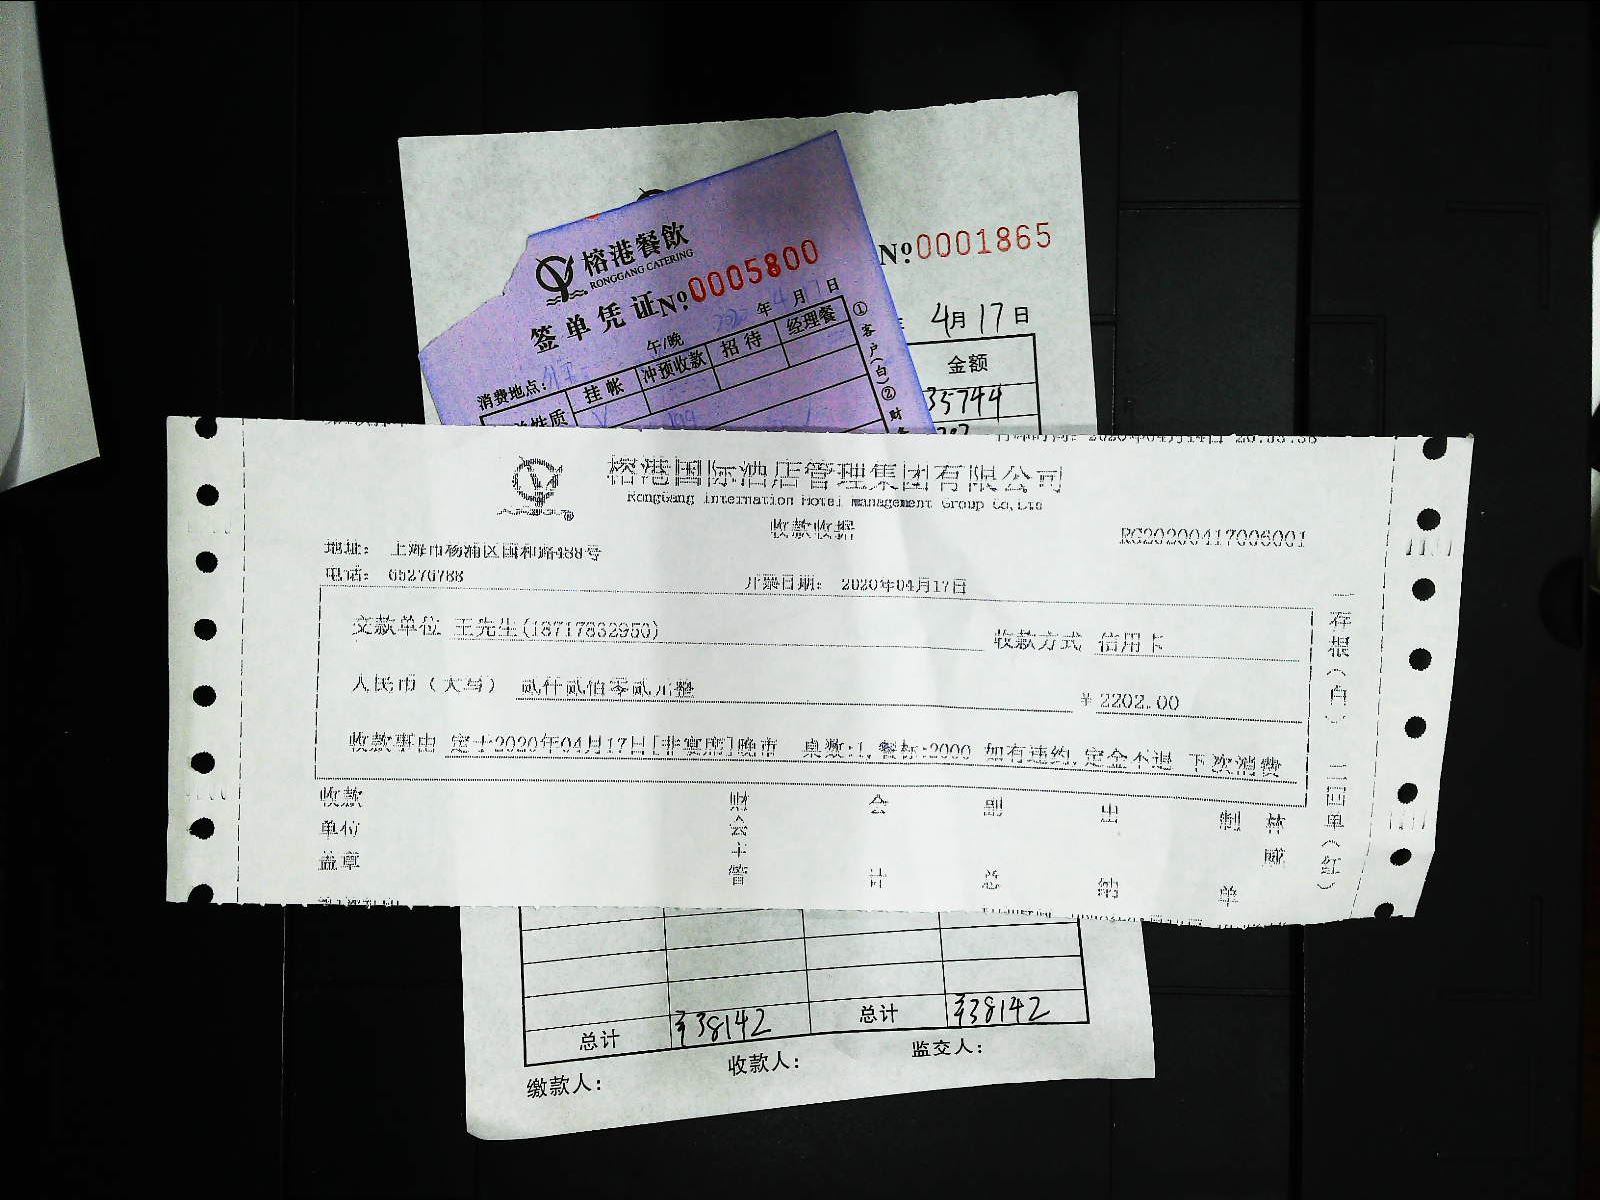 榕港餐飲
RONGGANG CATERING
签单凭证 №0005800
№0001865
年 月 日
4月17日
午/晚
消费地点：
挂帐 冲预收款 招待 经理餐
①客户(白)②财
金额
35744
榕港国际酒店管理集团有限公司
RongGang Internation Hotel Management Group Co,Ltd
收款收据
RG20200417006001
地址： 上海市杨浦区国和路488号
电话： 65276788
开票日期： 2020年04月17日
交款单位 王先生(18717832950)
收款方式 信用卡
人民币（大写） 贰仟贰佰零贰元整
￥2202.00
收款事由 定于2020年04月17日[非宴席]晚市 桌数:1,餐标:2000 如有违约,定金不退 下次消费
一存根(白) 二回单(红)
收款单位盖章
财会主管
会计
副总
出纳
制单
林威
总计 ￥38142 总计 ￥38142
缴款人： 收款人： 监交人：